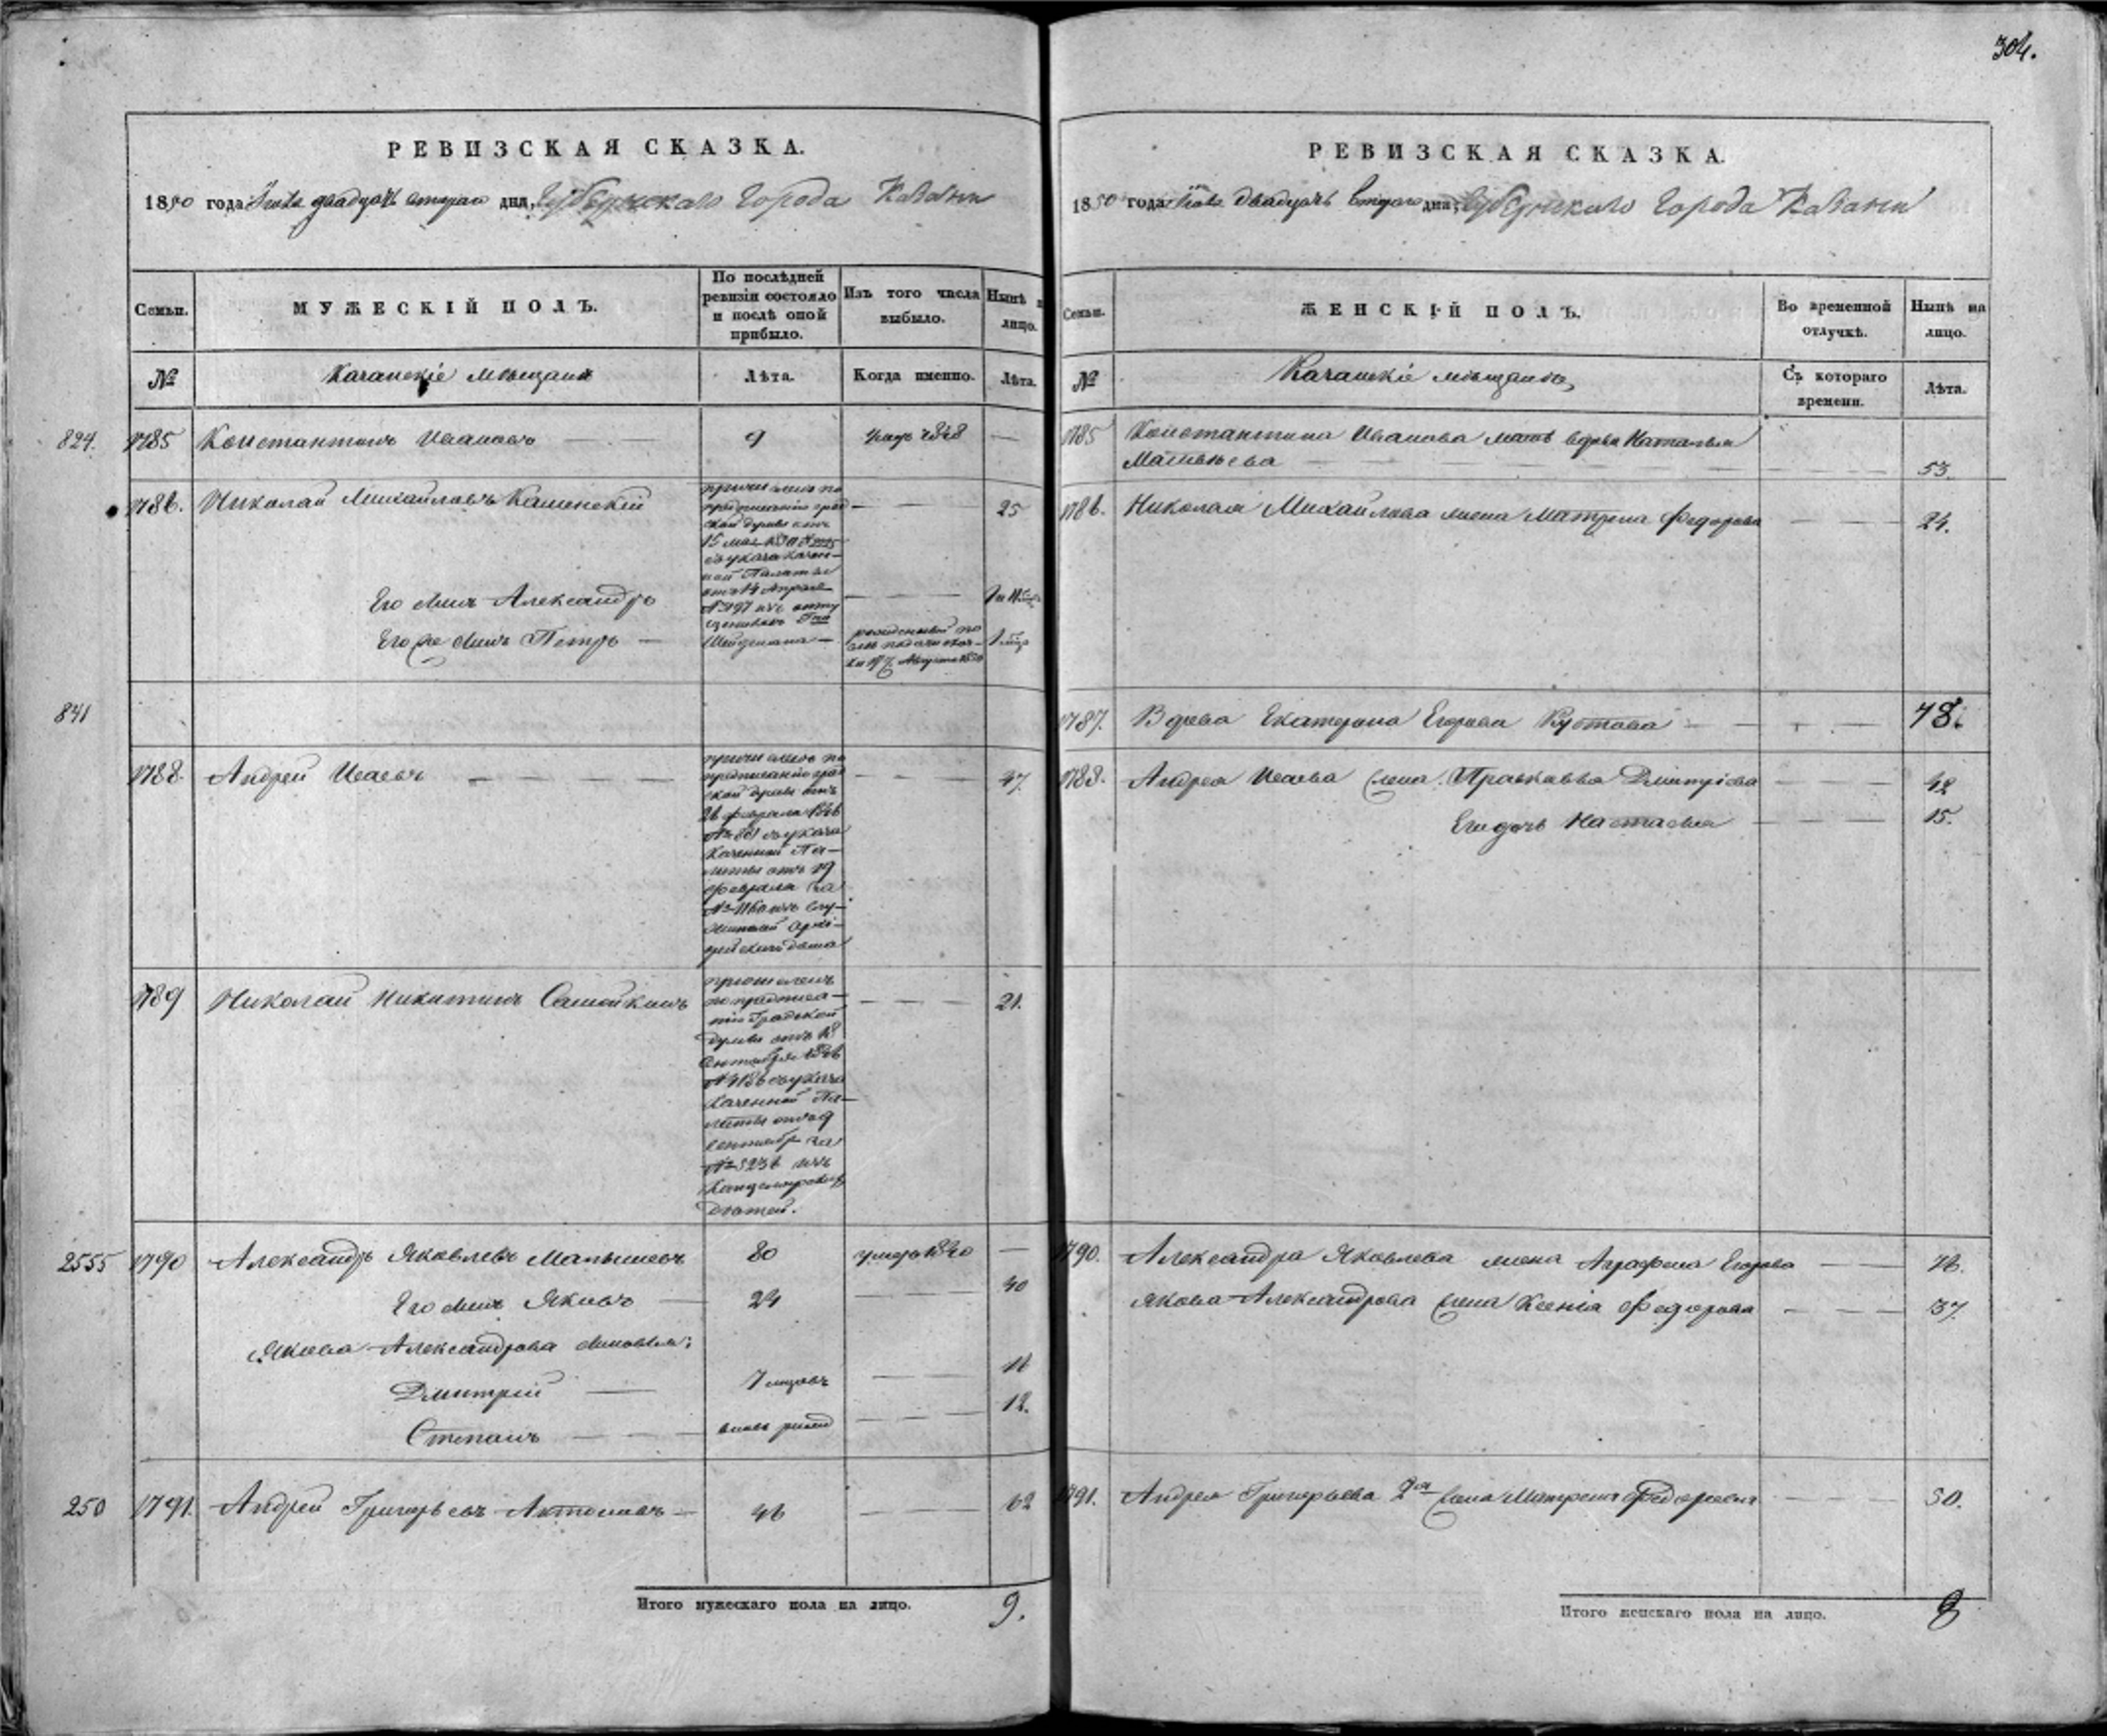 304.
РЕВИЗСКАЯ СКАЗКА.
1850 года Іюля двадцать втораго дня, Губернскаго Города Казани
Семьи.
МУЖЕСКІЙ ПОЛЪ.
По послѣдней ревизіи состояло и послѣ оной прибыло.
Изъ того числа выбыло.
Нынѣ на лицо.
№
Казанскіе мѣщане
Лѣта.
Когда именно.
Лѣта.
824.
1785
Константинъ Ивановъ
9
1848
1786.
Николай Михайловъ Кашинскій
причисленъ по
предписанію град
ской думы отъ
15 мая
съ указа казен-
ной Палаты
отъ 14 Апреля
№ 197 изъ отпу
щенныхъ
25
Его сынъ Александръ
Его же сынъ Петръ
рожденный по
слѣ подачи сказ-
ки 17 Августа 1850
841
1788.
Андрей Исаевъ
причисленъ по
предписанію град
ской думы отъ
26 февраля 1846
№ 881 съ указа
Казенной Па-
латы отъ 19
февраля за
№ 1160 изъ слу-
жителей Архі-
рейскаго дома
47.
1789
Николай Никитинъ Самойкинъ
причисленъ
по предписа-
нію Градской
думы отъ 18
Сентября 1846
№ 4186 съ указа
Казенной Па-
латы отъ 9
сентября за
№ 5236 изъ
Канцелярскихъ
дѣтей.
21.
2555
1790
Александръ Яковлевъ Малышевъ
80
умеръ 1840
Его сынъ Яковъ
24
40
Якова Александрова сыновья:
Дмитрій
7 мѣсяцовъ
16
Степанъ
вновь рожд
12.
250
1791.
Андрей Григорьевъ Антоновъ
46
62
Итого мужескаго пола на лицо.
9.
РЕВИЗСКАЯ СКАЗКА.
1850 года Іюля двадцать втораго дня, Губернскаго Города Казани
Семьи.
ЖЕНСКІЙ ПОЛЪ.
Во временной отлучкѣ.
Нынѣ на лицо.
№
Казанскіе мѣщанки
Съ котораго времени.
Лѣта.
1785
Константина Иванова мать вдова Наталья
Матвѣева
53.
1786.
Николая Михайлова жена Матрена Федорова
24.
1787.
Вдова Екатерина Егорова Кустова
78.
1788.
Андрея Исаева жена Прасковья Дмитріева
42
Его дочь Настасья
15.
1790.
Александра Яковлева жена Аграфена Егорова
76.
Якова Александрова жена Ксенія Федорова
37.
1791.
Андрея Григорьева 2я жена Матрена Федорова
50.
Итого женскаго пола на лицо.
8